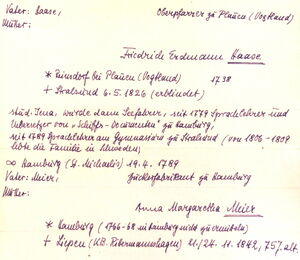 Vater: Haase, Oberpfarrer zu Plauen (Vogtland)
Mutter:
Friedrich Erdmann Haase
* Reinsdorf bei Plauen (Vogtland) 1738
+ Stralsund 6.5.1826 (erblindet)
stud. Jena, wurde dann Seefahrer, seit 1779 Sprachlehrer und
Übersetzer von "Schiffs-Documenten" zu Hamburg,
seit 1789 Sprachlehrer am Gymnasium zu Stralsund (von 1806-1809
lebte die Familie in Schweden)
∞ Hamburg (St. Michaelis) 19.4.1789
Vater: Meier, Zuckerfabrikant zu Hamburg
Mutter:
Anna Margaretha Meier
* Hamburg (1766-68 in Hamburg nicht zu ermitteln)
+ Liepen (KB. Rodermannshagen) 21./24.11.1842, 75 J. alt.